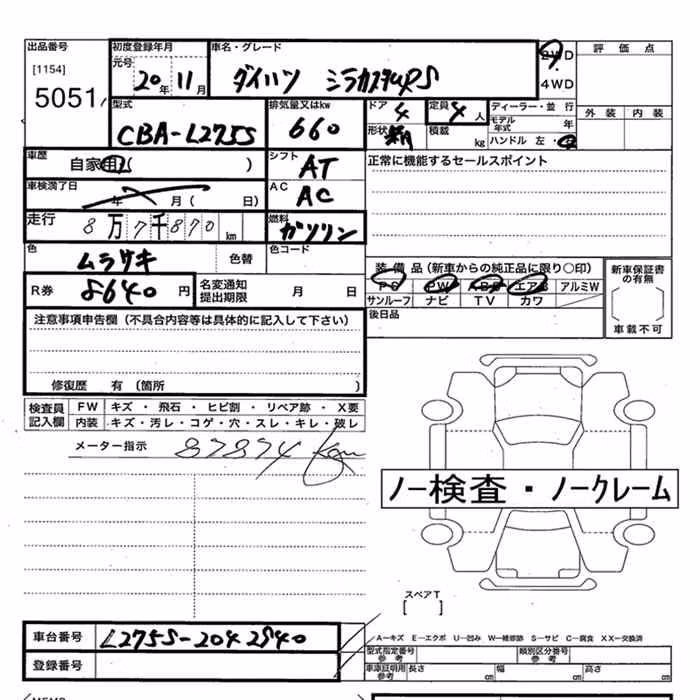 出品番号 初度登録年月 車名・グレード 2WD 評価点
[1154] 元号 20年 11月 ダイハツ 4WD
5051 型式 排気量又はkw ドア 4 定員 4人 ディーラー・並行 外装 内装
CBA-L275S 660 形状 積載 kg モデル年式 年 ハンドル 左・
車歴 自家 ( ) シフト AT 正常に機能するセールスポイント
車検満了日 年 月( 日) AC AC
走行 8万7千870km 燃料 ガソリン
色 ムラサキ 色替 色コード
装備品(新車からの純正品に限り○印) 新車保証書の有無
R券 8640円 名変通知提出期限 月 日 PS PW ABS エアB アルミW
サンルーフ ナビ TV カワ
注意事項申告欄(不具合内容等は具体的に記入して下さい) 後日品 車載不可
修復歴 有(箇所 )
検査員 FW キズ・飛石・ヒビ割・リペア跡・X要
記入欄 内装 キズ・汚レ・コゲ・穴・スレ・キレ・破レ
メーター指示 87874 km
ノー検査・ノークレーム
スペアT
[ ]
車台番号 L275S-2042840
A-キズ E-エクボ U-凹み W-補修跡 S-サビ C-腐食 XX-交換済
登録番号 型式指定番号 参考 類別区分番号 参考
車庫証明用 参考 長さ cm 幅 cm 高さ cm
MEMO